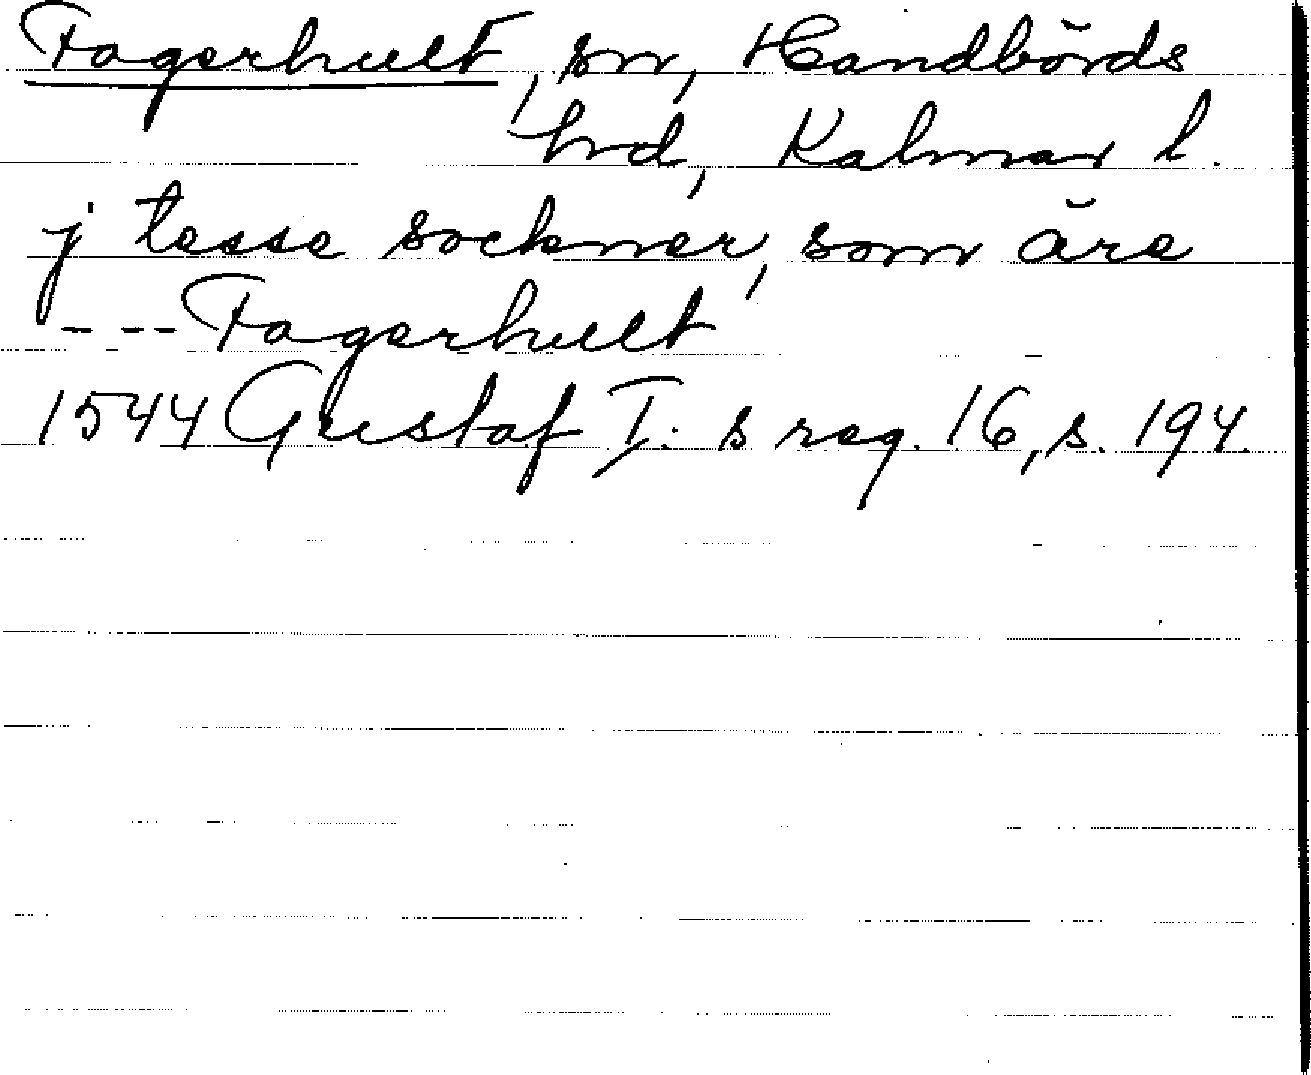 Fagerhult, sn, Handbörds
hrd, Kalmar l.
j tesse sockner, som äre
--- Fagerhult
1544 Gustaf I:s reg. 16, s. 194.